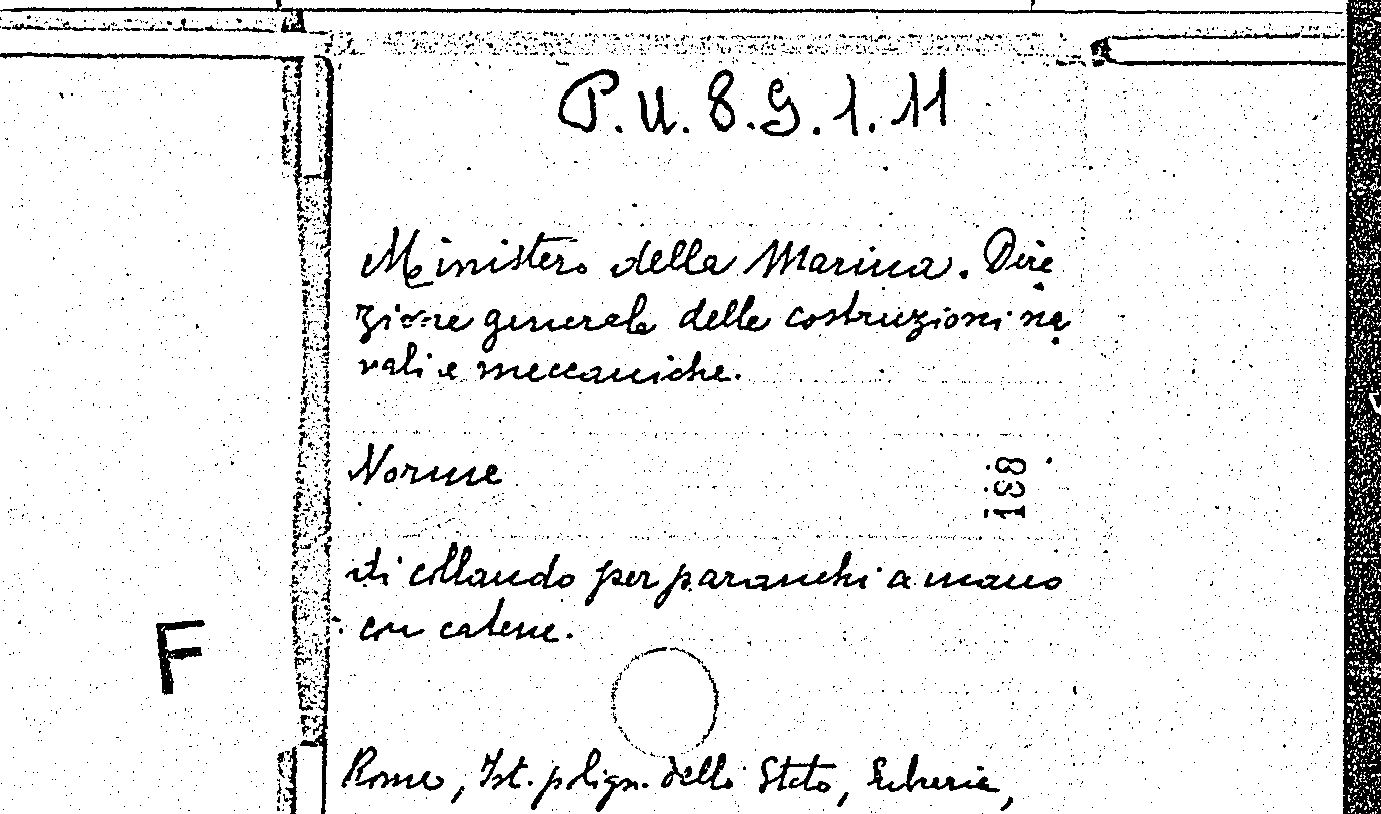 P.U.8.G.1.11
Ministero della Marina. Dire
zione generale delle costruzioni na
vali e meccaniche.
Norme
183
di collaudo per paranchi a mano
con catene.
F
Roma, Ist. poligr. dello Stato, Libreria,